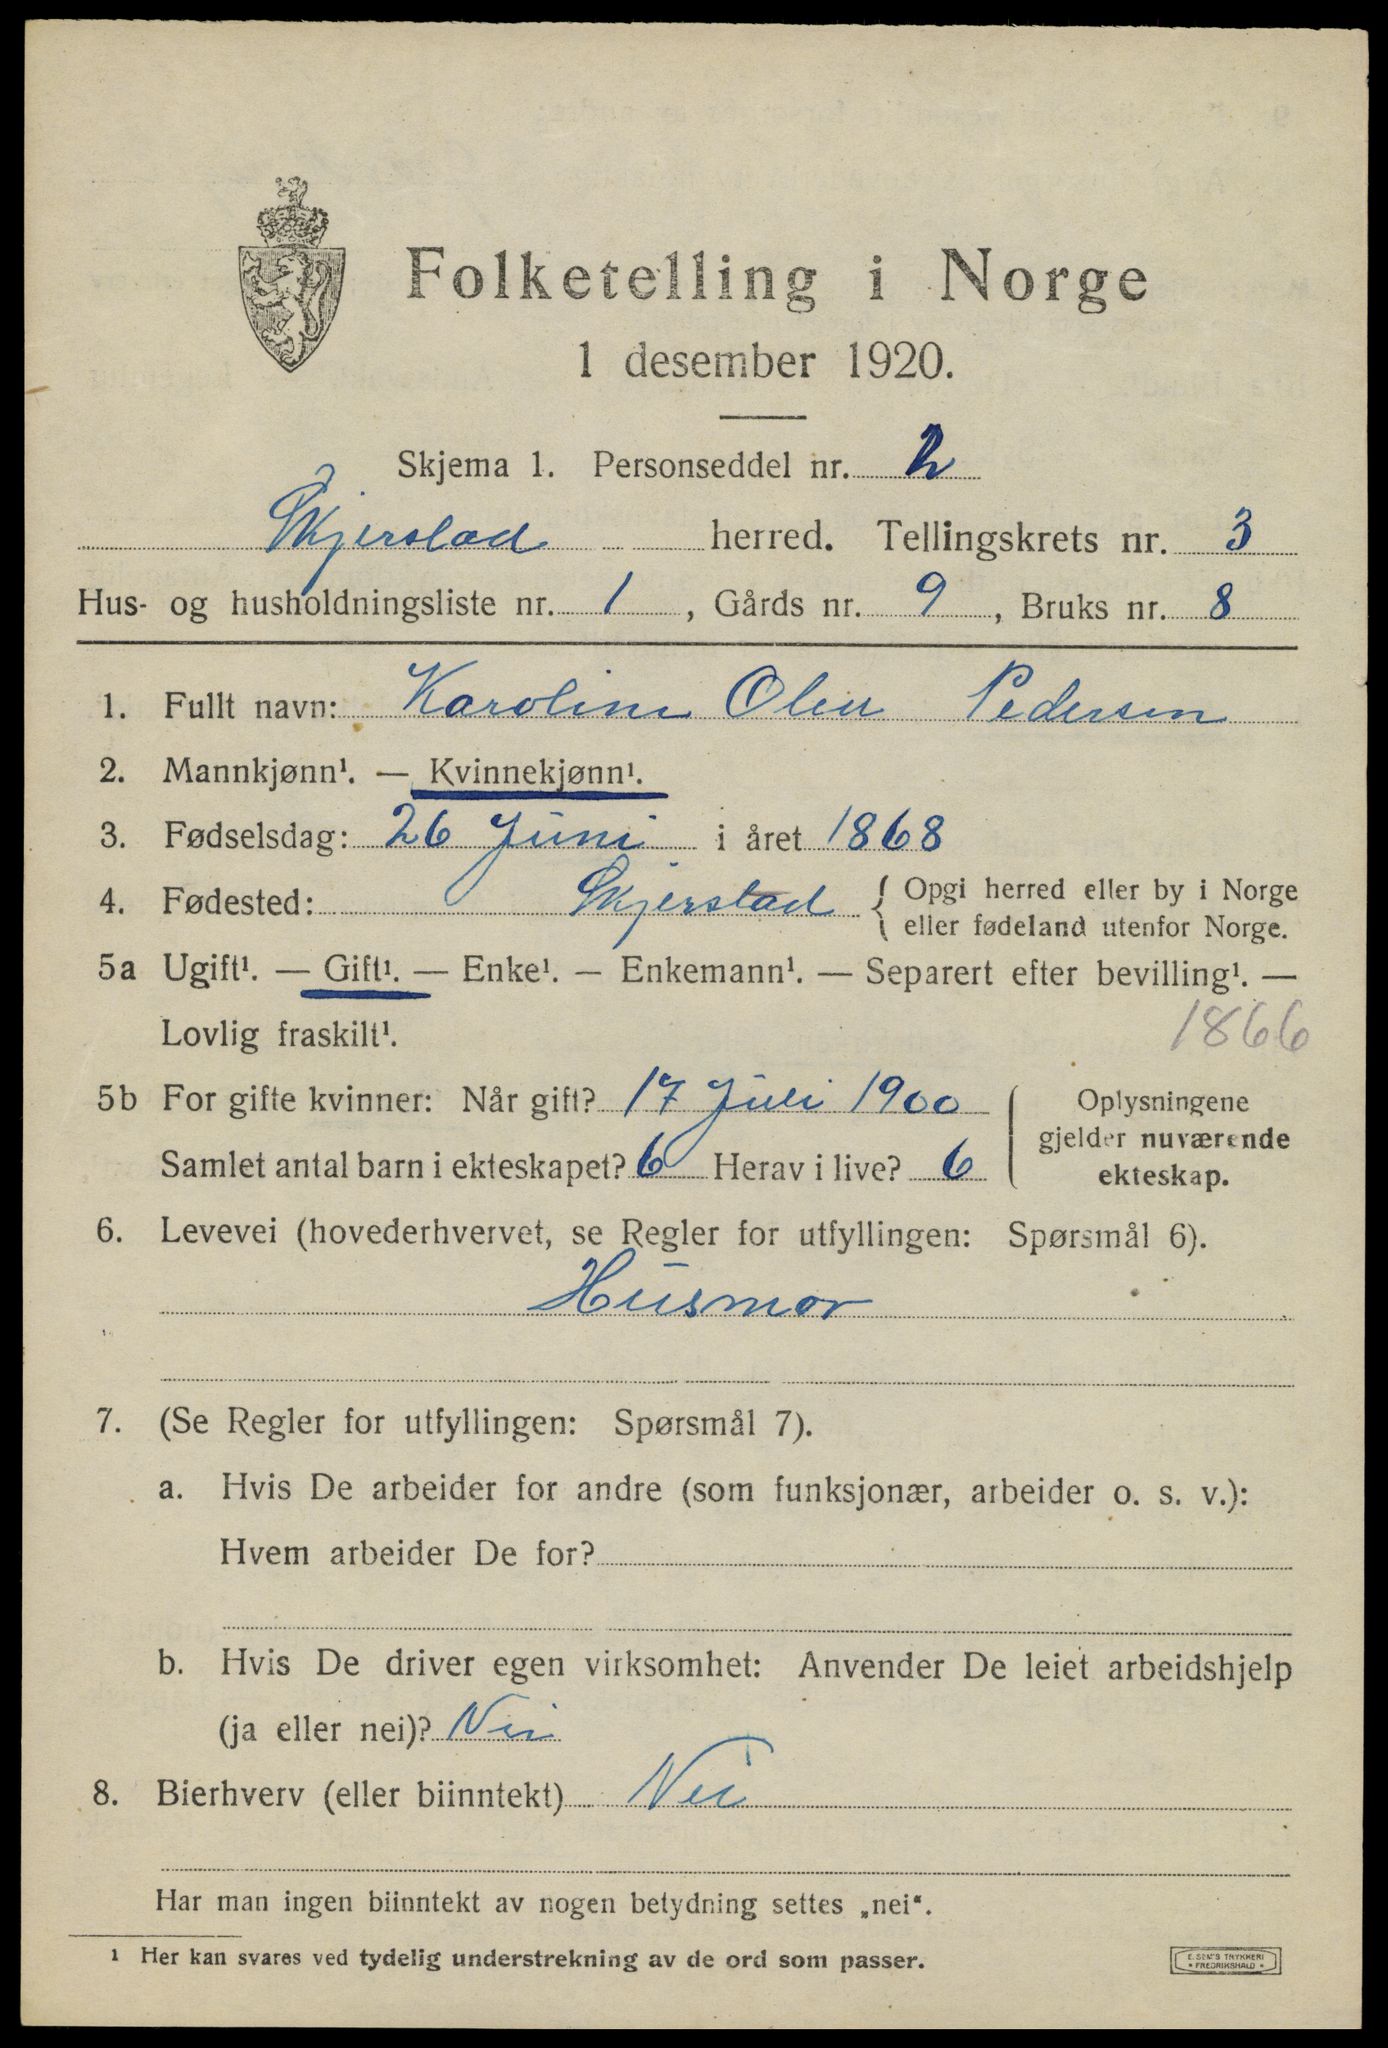 Folketelling i Norge
1 desember 1920.
Skjema 1. Personseddel nr. 2
Skjerstad herred. Tellingskrets nr. 3
Hus- og husholdningsliste nr. 1, Gårds nr. 9, Bruks nr. 8
1. Fullt navn: Karoline Olea Pedersen
2. Mannkjønn¹. — Kvinnekjønn¹.
3. Fødselsdag: 26 Juni i året 1868
4. Fødested: Skjerstad { Opgi herred eller by i Norge
eller fødeland utenfor Norge.
5a Ugift¹. — Gift¹. — Enke¹. — Enkemann¹. — Separert efter bevilling¹. —
Lovlig fraskilt¹.
1866
5b For gifte kvinner: Når gift? 17 Juli 1900
Samlet antal barn i ekteskapet? 6 Herav i live? 6
Oplysningene
gjelder nuværende
ekteskap.
6. Levevei (hovederhvervet, se Regler for utfyllingen: Spørsmål 6).
Husmor
7. (Se Regler for utfyllingen: Spørsmål 7).
a. Hvis De arbeider for andre (som funksjonær, arbeider o. s. v.):
Hvem arbeider De for?
b. Hvis De driver egen virksomhet: Anvender De leiet arbeidshjelp
(ja eller nei)? Nei
8. Bierhverv (eller biinntekt) Nei
Har man ingen biinntekt av nogen betydning settes „nei“.
¹ Her kan svares ved tydelig understrekning av de ord som passer.
E. SEM'S TRYKKERI
• FREDRIKSHALD •